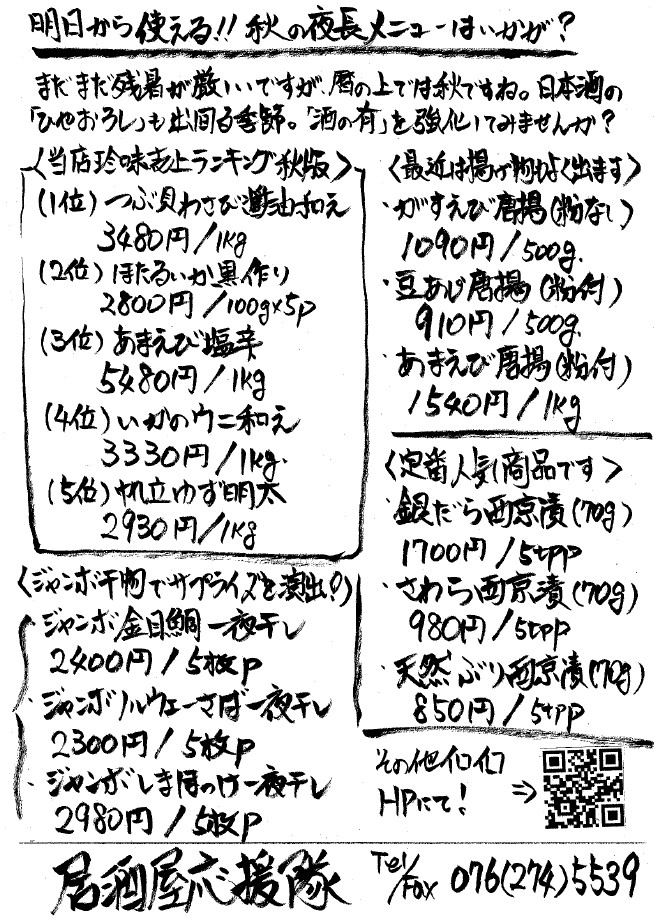 明日から使える!! 秋の夜長メニューはいかが?
まだまだ残暑が厳しいですが、暦の上では秋ですね。日本酒の
「ひやおろし」も出回る季節。「酒の肴」を強化してみませんか?
〈当店珍味売上ランキング秋版〉
(1位)つぶ貝わさび醤油和え
3480円/1kg
(2位)ほたるいか黒作り
2800円/100g×5p
(3位)あまえび塩辛
5480円/1kg
(4位)いかのウニ和え
3330円/1kg
(5位)帆立ゆず明太
2930円/1kg
〈ジャンボ干物でサプライズを演出!?〉
・ジャンボ金目鯛一夜干し
2400円/5枚p
・ジャンボノルウェーさば一夜干し
2300円/5枚p
・ジャンボしまほっけ一夜干し
2980円/5枚p
〈最近は揚げ物もよく出ます〉
・がすえび唐揚(粉なし)
1090円/500g
・豆あじ唐揚(粉付)
910円/500g
・あまえび唐揚(粉付)
1540円/1kg
〈定番人気商品です〉
・銀だら西京漬(70g)
1700円/5切p
・さわら西京漬(70g)
980円/5切p
・天然ぶり西京漬(70g)
850円/5切p
その他イロイロ
HPにて! ⇒
居酒屋応援隊 Tel/Fax 076(274)5539